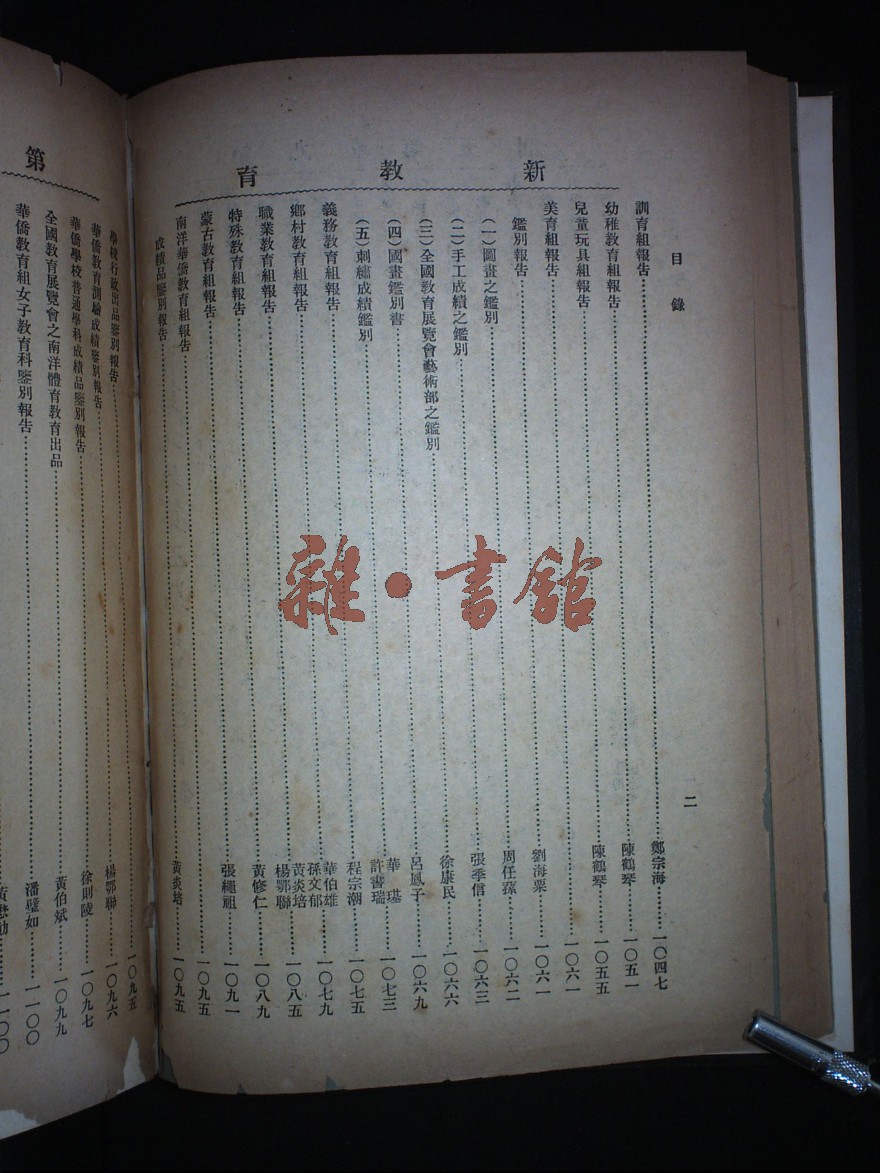 新教育
目錄
二
訓育組報告……鄭宗海……一〇四七
幼稚教育組報告……陳鶴琴……一〇五一
兒童玩具組報告……陳鶴琴……一〇五五
美育組報告……一〇六一
鑑別報告……劉海粟……一〇六一
(一)圖畫之鑑別……周任蓀……一〇六二
(二)手工成績之鑑別……張季信……一〇六三
(三)全國教育展覽會藝術部之鑑別……徐康民……一〇六六
(四)國畫鑑別書……呂鳳子……一〇六九
(五)刺繡成績鑑別……華璂 許書瑞……一〇七三
義務教育組報告……程宗潮……一〇七五
鄉村教育組報告……華伯雄 孫文郁……一〇七九
職業教育組報告……黃炎培 楊鄂聯……一〇八五
特殊教育組報告……黃修仁……一〇八九
蒙古教育組報告……張繩祖……一〇九一
南洋華僑教育組報告……一〇九五
成績品鑒別報告……黃炎培……一〇九五
第
學校行政出品鑒別報告……一〇九五
華僑教育測驗成績鑒別報告……楊鄂聯……一〇九六
華僑學校普通學科成績品鑒別報告……徐則陵……一〇九七
全國教育展覽會之南洋體育教育出品……黃伯斌……一〇九九
華僑教育組女子教育科鑒別報告……潘璧如……一一〇〇
一一〇〇
雜·書館